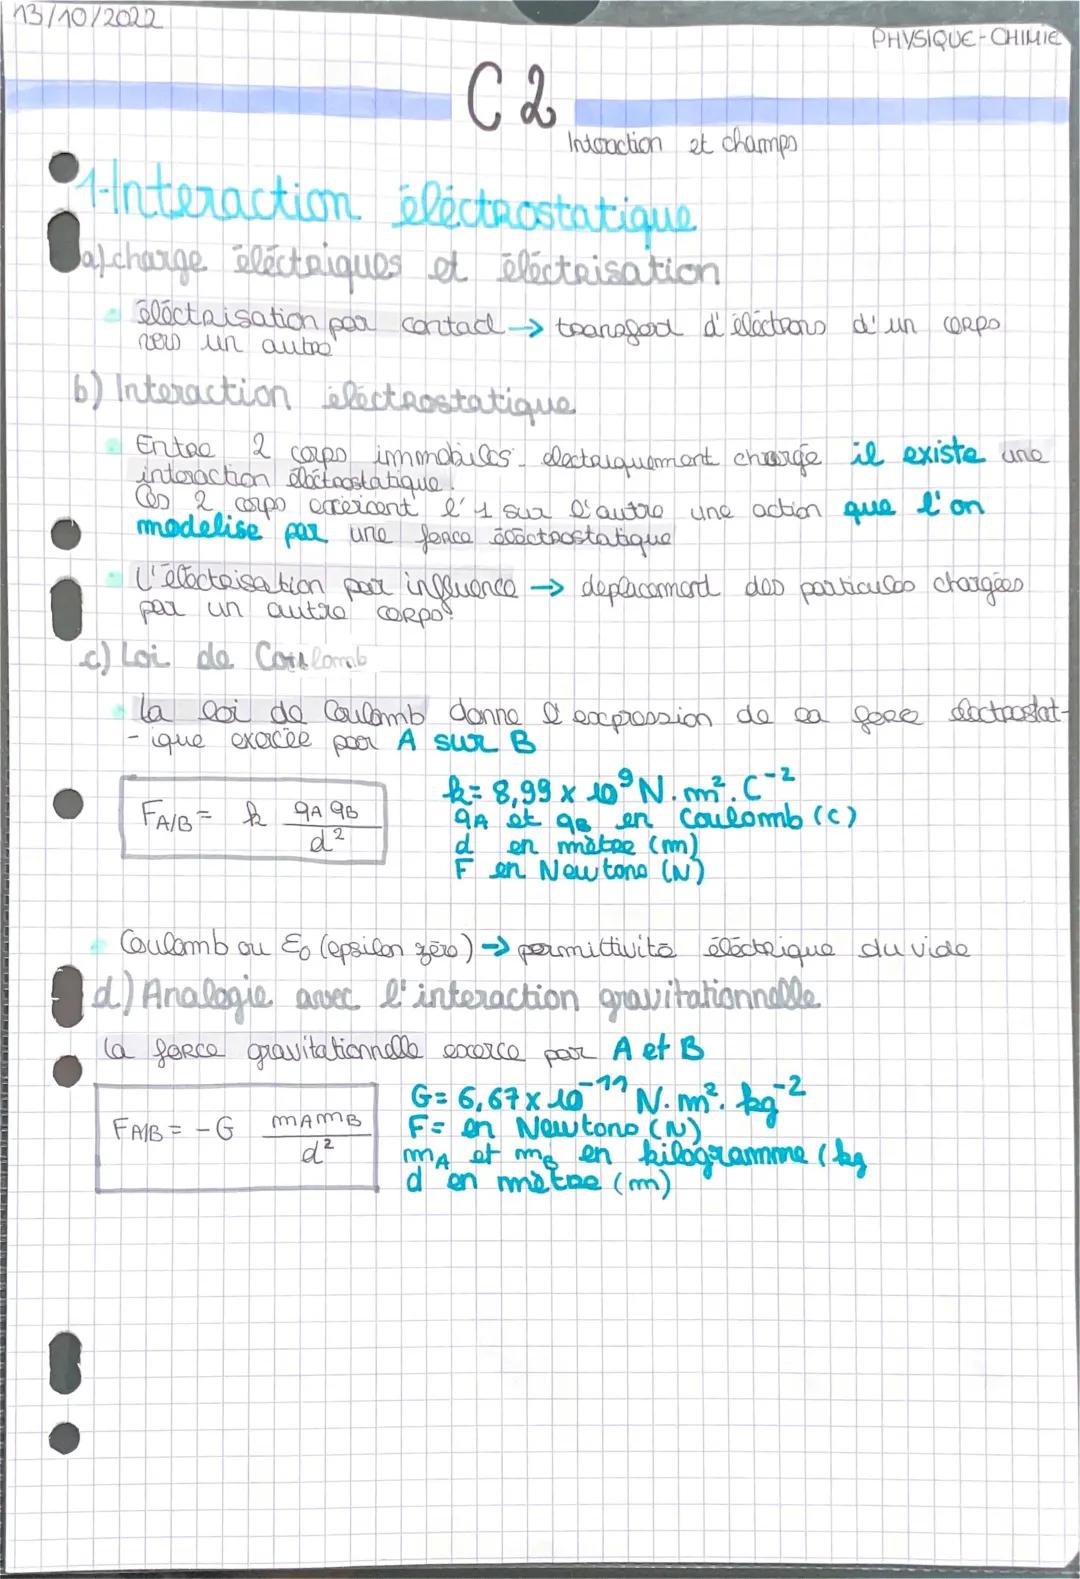 13/10/2022
PHYSIQUE-CHIMIE
C2
Interaction et champs
1-Interaction éléctrostatique
a) charge éléctriques et éléctrisation
éléctrisation par contact → transfert d'éléctrons d'un corps
vers un autre
b) Interaction éléctrostatique
Entre 2 corps immobiles electriquement chargé il existe une
interaction éléctrostatique.
Ces 2 corps exercent l'1 sur l'autre une action que l'on
modelise par une force éléctrostatique
L'éléctrisation par influence → deplacement des particules chargées
par un autre corps.
c) Loi de Coulomb
la loi de Coulomb donne l'expression de la force electrostat-
-ique exercée par A sur B
FA/B = k qA qB / d²
k = 8,99 x 10⁹ N.m².C⁻²
qA et qB en Coulomb (C)
d en mètre (m)
F en Newtons (N)
Coulomb ou ε₀ (epsilon zéro) → permittivité éléctrique du vide
d) Analogie avec l'interaction gravitationnelle
la force gravitationnelle exerce par A et B
FA/B = -G mAmB / d²
G = 6,67 x 10⁻¹¹ N.m².kg⁻²
F = en Newtons (N)
mA et mB en kilogramme (kg
d en mètre (m)